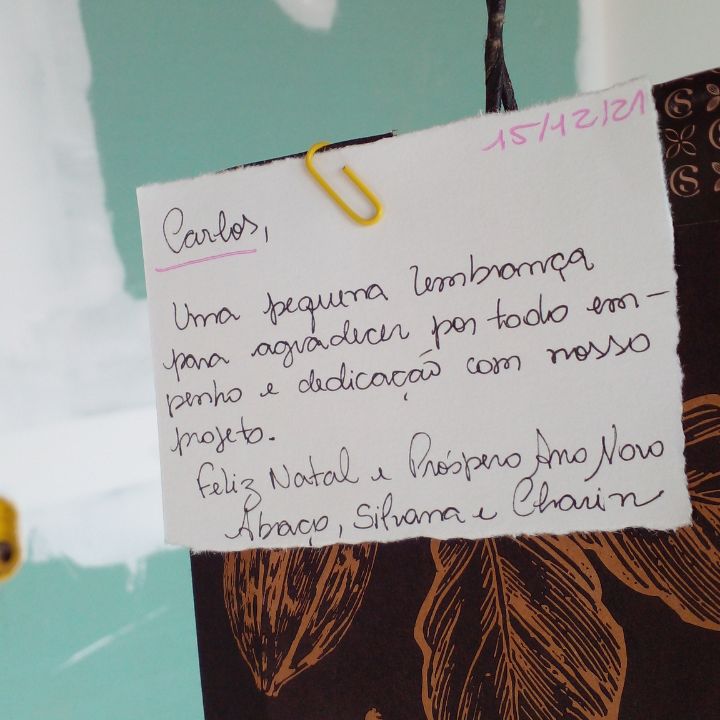 15/12/21
Carlos,
Uma pequena lembrança
para agradecer por todo em-
penho e dedicação com nosso
projeto.
Feliz Natal e Próspero Ano Novo
Abaço, Silvana e Charin